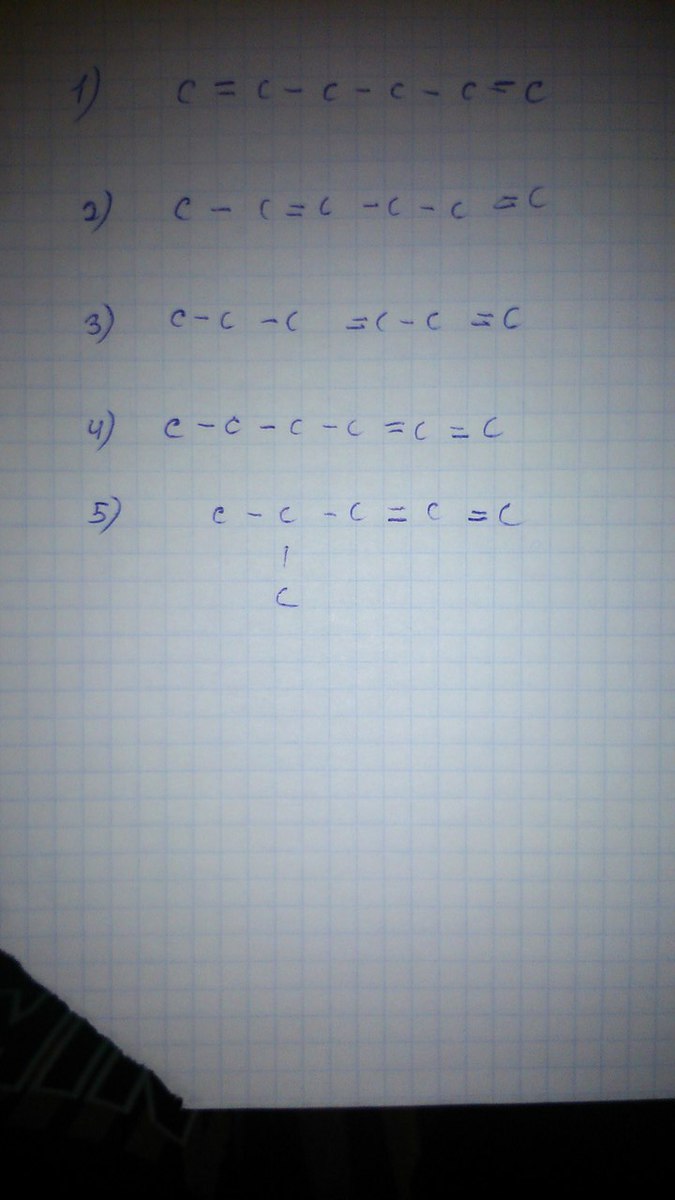 1) C = C - C - C - C = C
2) C - C = C - C - C = C
3) C - C - C = C - C = C
4) C - C - C - C = C = C
5) C - C - C = C = C
|
C